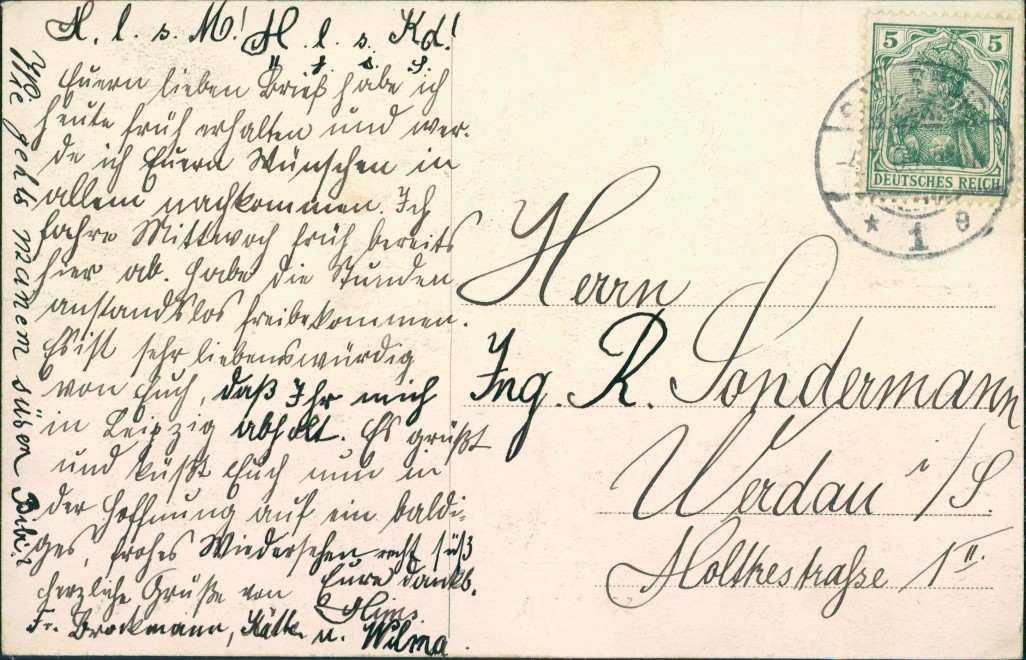 A. l. s. M! H. l. s. Kd.!
Euern lieben Brief habe ich
heute früh erhalten und wer-
de ich Euern Wünschen in
allem nachkommen. Ich
fahre Mittwoch früh bereits
hier ab. Habe die Stunden
anstandslos freibekommen.
Es ist sehr liebenswürdig
von Euch, daß Ihr mich
in Leipzig abholt. Es grüßt
und küßt Euch nun in
der Hoffnung auf ein baldi-
ges, frohes Wiedersehen recht süß
Eure dankb.
herzliche Grüße von
Fr. Brockmann, Käthe u. Wilma.
Wie gehts meinem süßen Bibi?
Herrn
Ing. R. Sondermann
Werdau i/S.
Moltkestraße 1 II.
5 5
DEUTSCHES REICH
* 1 e